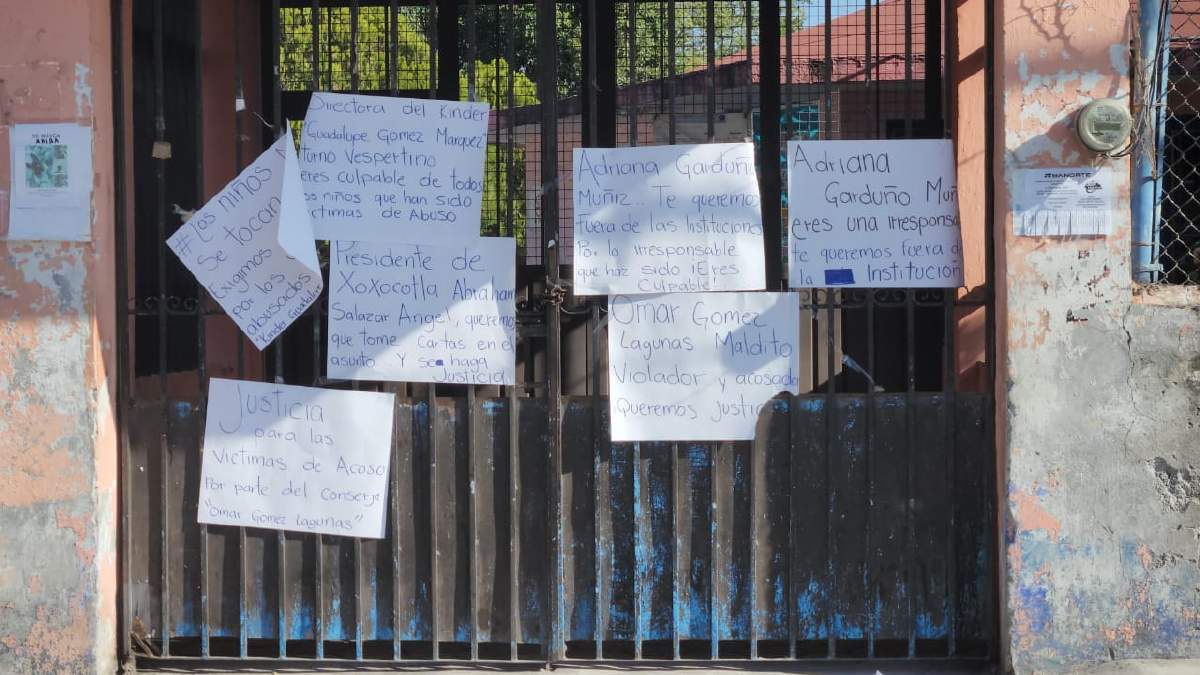 Directora del Kinder
Guadalupe Gomez Marquez
turno Vespertino
eres culpable de todos
los niños que han sido
víctimas de Abuso
#Los niños
Se tocan
Exigimos
por los
abusados
Presidente de
Xoxocotla Abraham
Salazar Angel, queremos
que tome Cartas en el
asunto Y se haga
Justicia
Justicia
para las
Victimas de Acoso
Por parte del Conserje
"Omar Gomez Lagunas"
Adriana Garduño
Muñiz.. Te queremos
fuera de las Instituciones
Por lo irresponsable
que haz sido !Eres
Culpable!
Omar Gomez
Lagunas Maldito
Violador y acosador
Queremos justicia
Adriana
Garduño Muñ
eres una irresponsa
te queremos fuera d
la Institución
BANORTE